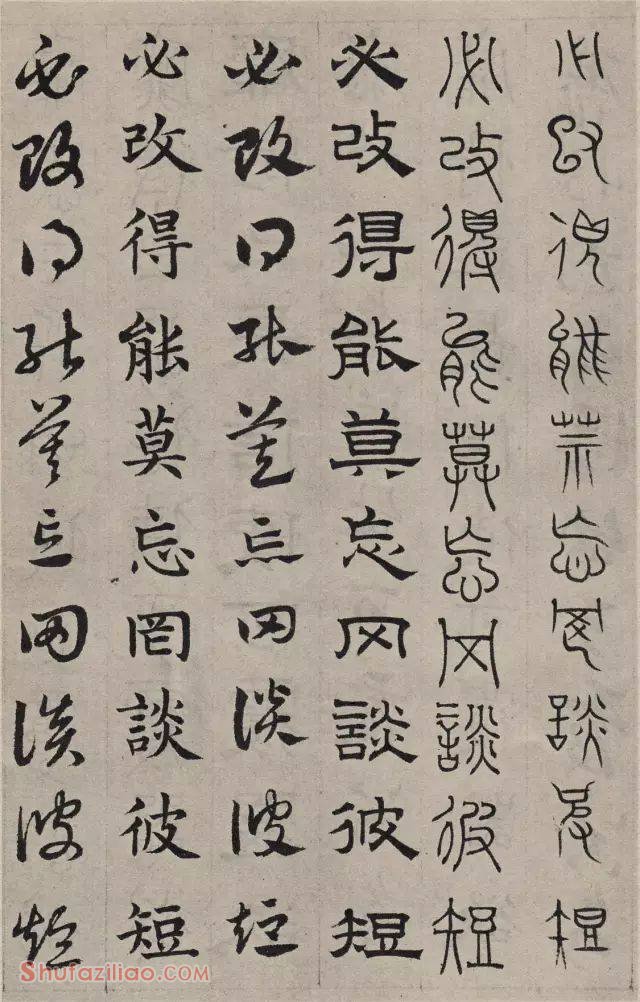 必改得能莫忘罔談彼短
必改得能莫忘罔談彼短
必改得能莫忘罔談彼短
必改得能莫忘罔談彼短
必改得能莫忘罔談彼短
必改得能莫忘罔談彼短
Shufaziliao.com